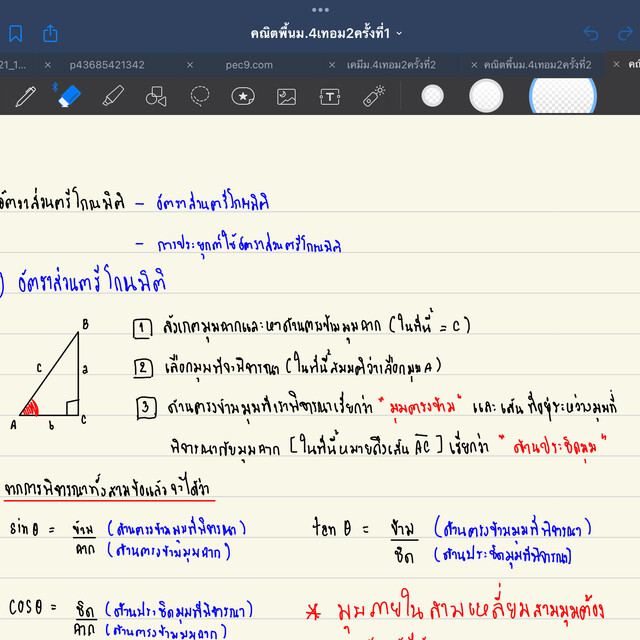 คณิตพื้นม.4เทอม2ครั้งที่1
21_1... × p43685421342 × pec9.com × เคมีม.4เทอม2ครั้งที่2 × คณิตพื้นม.4เทอม2ครั้งที่2 × คณิ
อัตราส่วนตรีโกณมิติ - อัตราส่วนตรีโกณมิติ
- การประยุกต์ใช้อัตราส่วนตรีโกณมิติ
) อัตราส่วนตรีโกณมิติ
B
c
a
A
b
C
1 สังเกตมุมฉากและหาด้านตรงข้ามมุมฉาก (ในที่นี้ = C)
2 เลือกมุมที่จะพิจารณา (ในที่นี้สมมติว่าเลือกมุม A)
3 ด้านตรงข้ามมุมที่เราพิจารณาเรียกว่า "มุมตรงข้าม" และเส้นที่อยู่ระหว่างมุมที่
พิจารณากับมุมฉาก [ในที่นี้หมายถึงเส้น AC] เรียกว่า "ด้านประชิดมุม"
จากการพิจารณาทั้งสามข้อแล้วจะได้ว่า
sin θ = ข้าม (ด้านตรงข้ามมุมที่พิจารณา)
ฉาก (ด้านตรงข้ามมุมฉาก)
tan θ = ข้าม (ด้านตรงข้ามมุมที่พิจารณา)
ชิด (ด้านประชิดมุมที่พิจารณา)
cos θ = ชิด (ด้านประชิดมุมที่พิจารณา)
ฉาก (ด้านตรงข้ามมุมฉาก)
* มุมภายในสามเหลี่ยมสามมุมต้อง